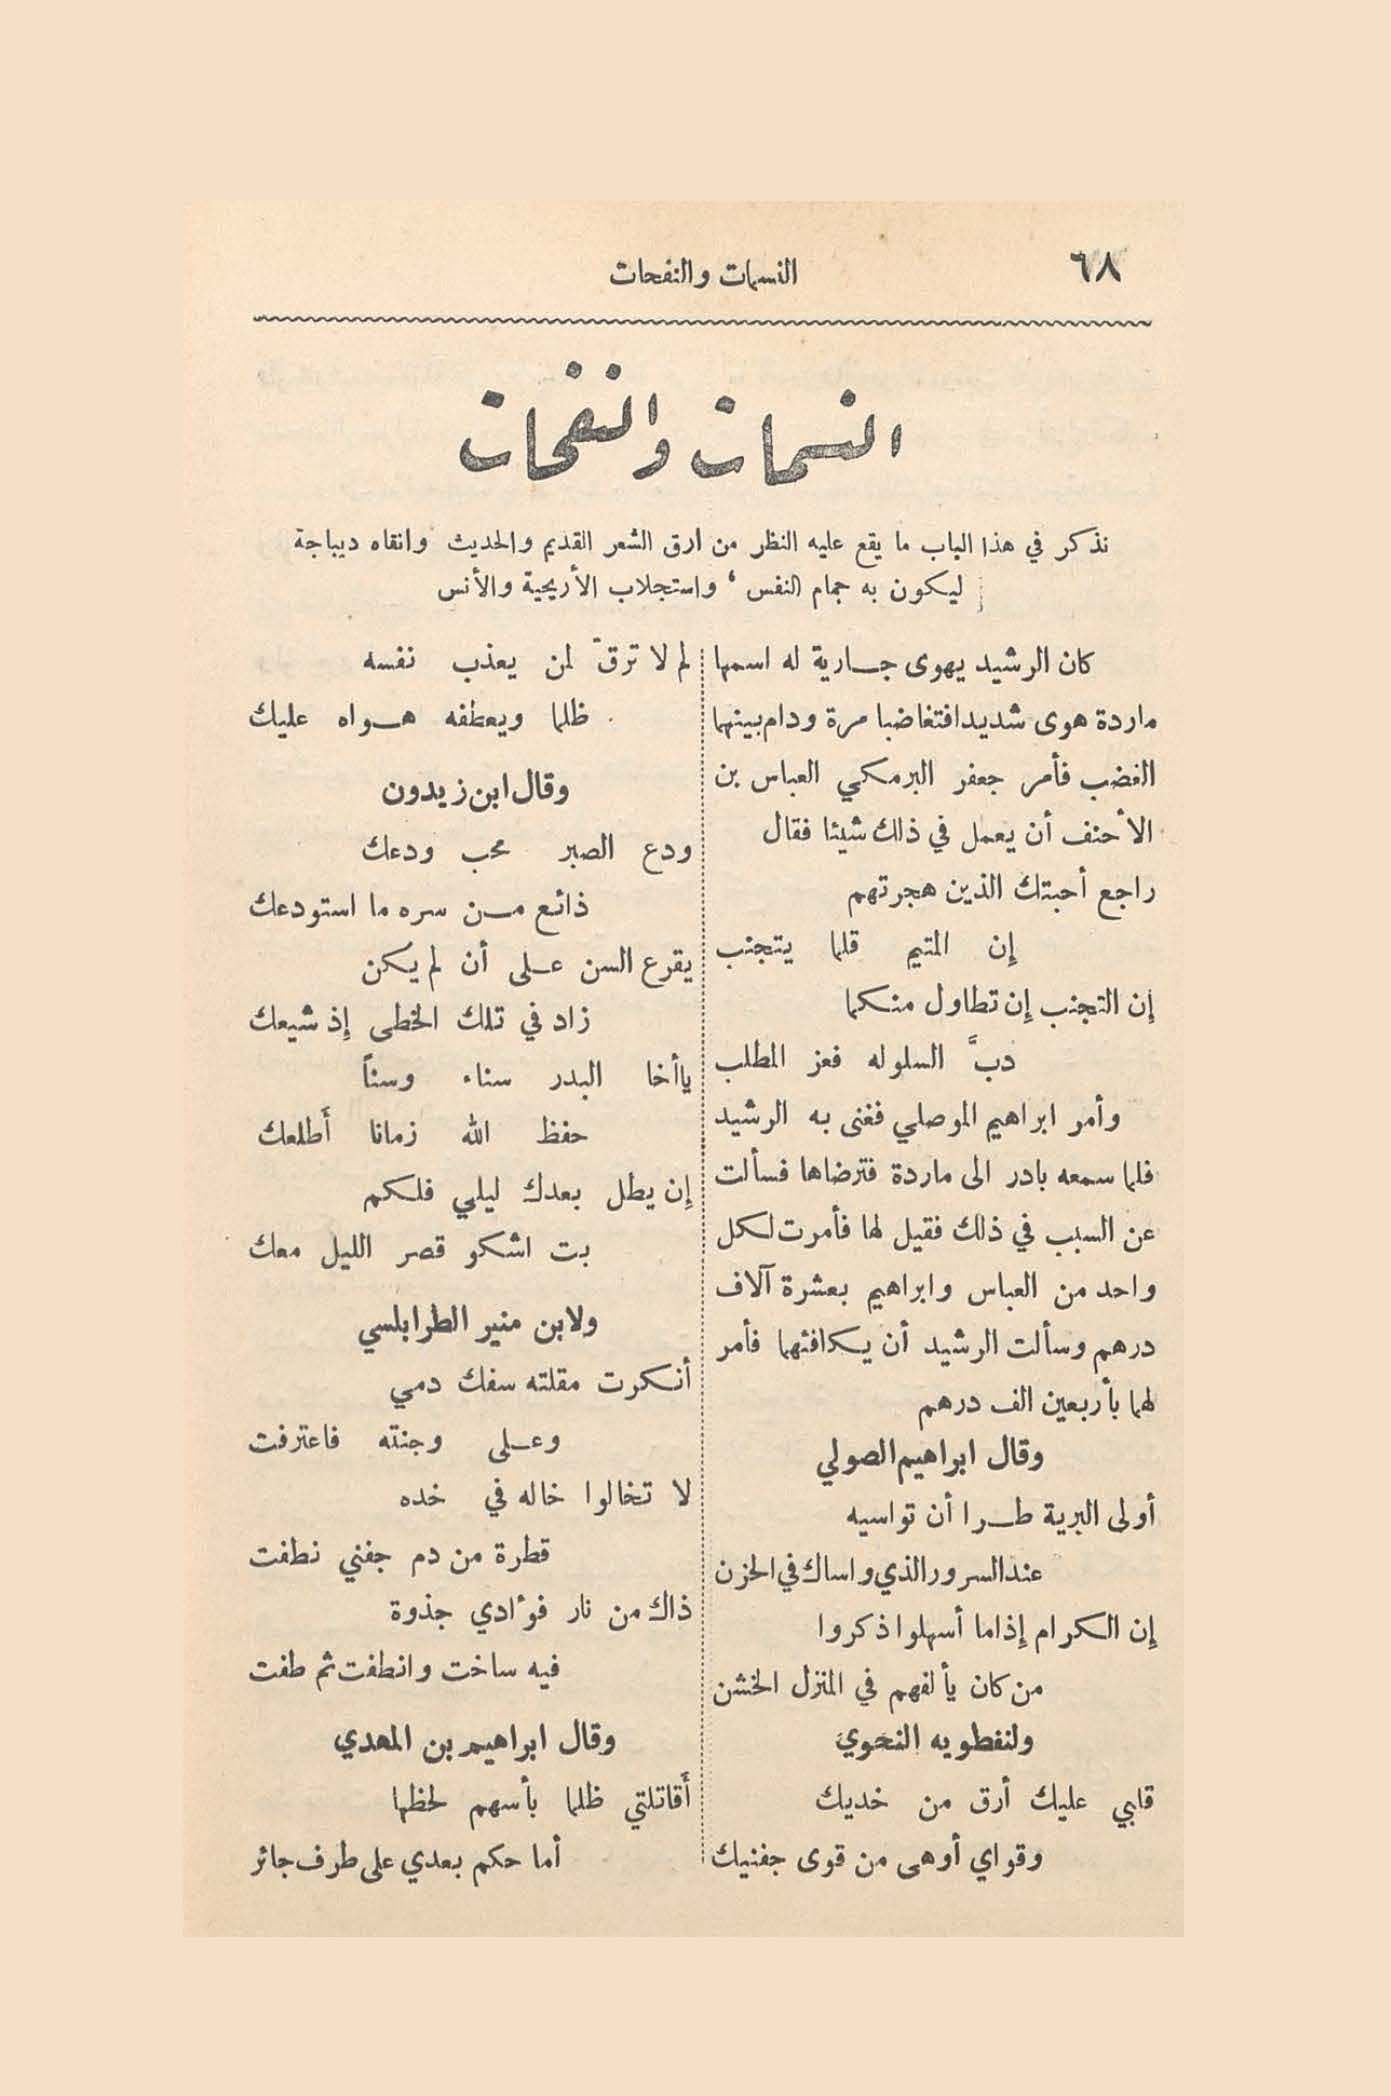 ٦٨
النسمات والنفحات
النسمات والنفحات
نذكر في هذا الباب ما يقع عليه النظر من ارق الشعر القديم والحديث وانقاه ديباجة
ليكون به جمام النفس ، واستجلاب الأريحية والأنس
كان الرشيد يهوى جارية له اسمها
ماردة هوى شديدا فتغاضبا مرة ودام بينهما
الغضب فأمر جعفر البرمكي العباس بن
الأحنف أن يعمل في ذلك شيئا فقال
راجع أحبتك الذين هجرتهم
إن المتيم قلما يتجنب
إن التجنب إن تطاول منكما
دبَّ السلو له فعز المطلب
وأمر ابراهيم الموصلي فغنى به الرشيد
فلما سمعه بادر الى ماردة فترضاها فسألت
عن السبب في ذلك فقيل لها فأمرت لكل
واحد من العباس وابراهيم بعشرة آلاف
درهم وسألت الرشيد أن يكافئهما فأمر
لهما بأربعين الف درهم
وقال ابراهيم الصولي
أولى البرية طرا أن تواسيه
عند السرور الذي واساك في الحزن
إن الكرام إذا ما أسهلوا ذكروا
من كان يألفهم في المنزل الخشن
ولنفطويه النحوي
قلبي عليك أرق من خديك
وقواي أوهى من قوى جفنيك
لم لا ترقّ لمن يعذب نفسه
ظلما ويعطفه هواه عليك
وقال ابن زيدون
ودع الصبر محب ودعك
ذائع من سره ما استودعك
يقرع السن على أن لم يكن
زاد في تلك الخطى إذ شيعك
يا أخا البدر سناء وسناً
حفظ الله زمانا أَطلعك
إن يطل بعدك ليلي فلكم
بت اشكو قصر الليل معك
ولابن منير الطرابلسي
أنكرت مقلته سفك دمي
وعلى وجنته فاعترفت
لا تخالوا خاله في خده
قطرة من دم جفني نطفت
ذاك من نار فؤادي جذوة
فيه ساخت وانطفت ثم طفت
وقال ابراهيم بن المهدي
أَقاتلتي ظلما بأسهم لحظها
أما حكم بعدي على طرف جائر